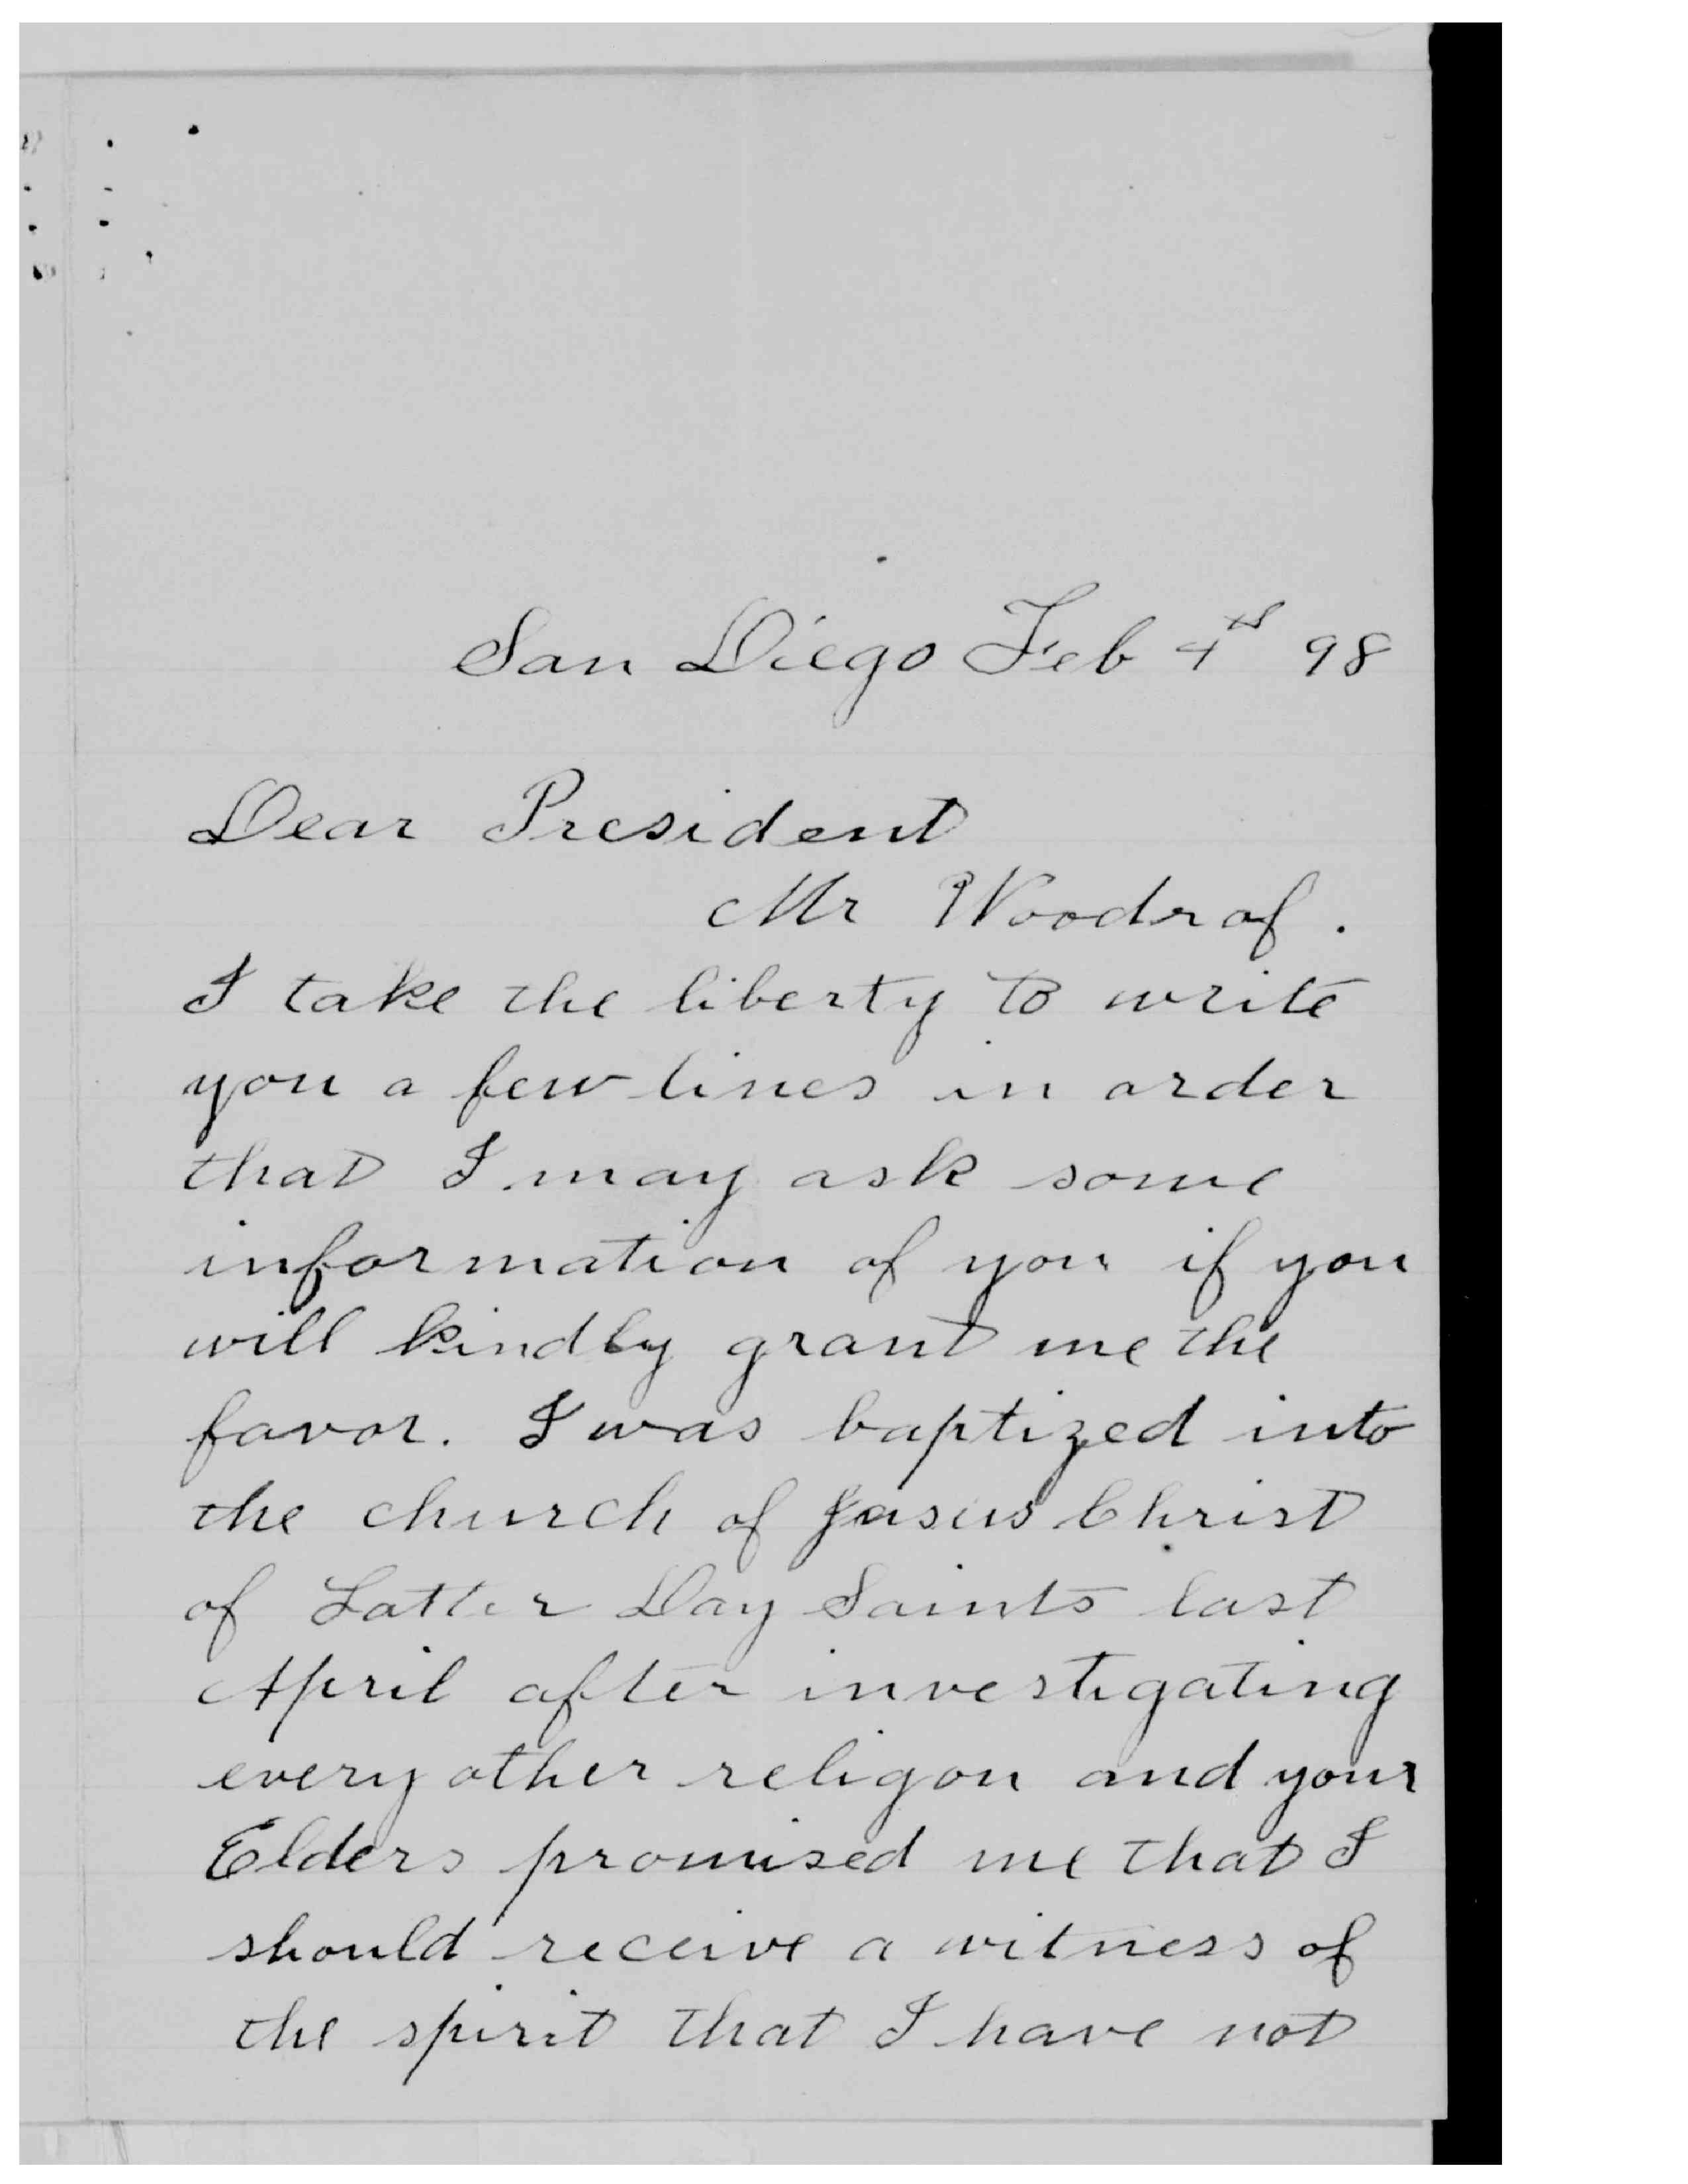 San Diego Feb 4th 98
Dear President
Mr Woodrof.
I take the liberty to write
you a few lines in order
that I may ask some
information of you if you
will kindly grant me the
favor. I was baptized into
the church of Jesus Christ
of Latter Day Saints last
April after investigating
every other religon and your
Elders promised me that I
should receive a witness of
the spirit that I have not